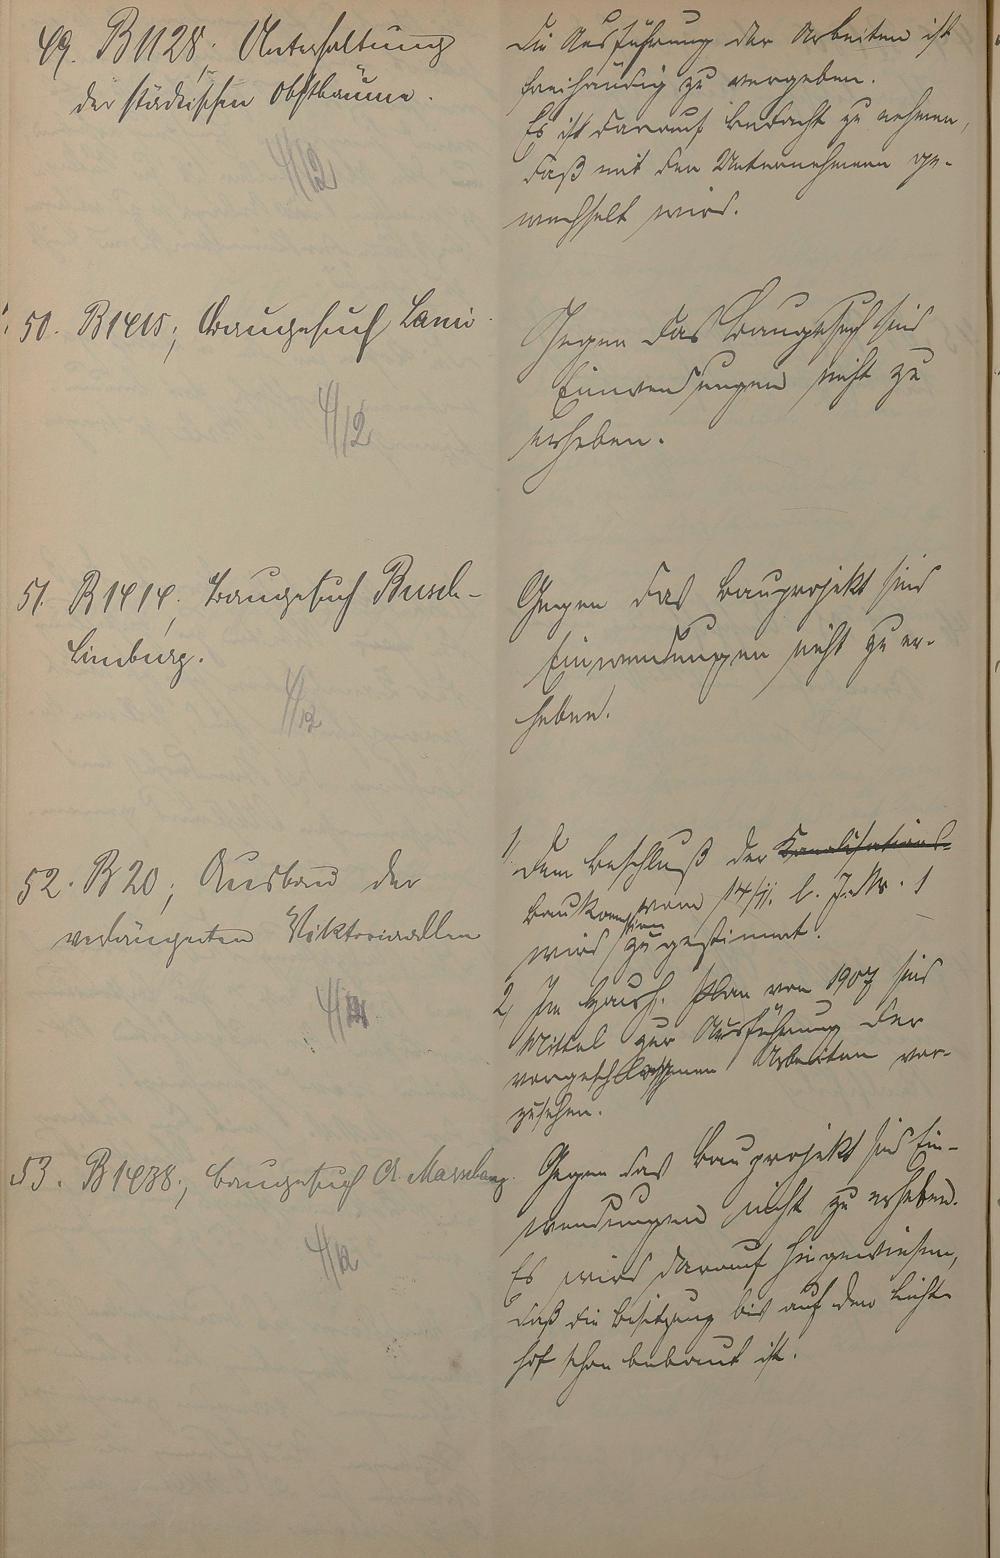 49. B1128; Unterhaltung
der städtischen Obstbäume.
4/12
Die Ausführung der Arbeiten ist
freihändig zu vergeben.
Es ist darauf bedacht zu nehmen,
daß mit den Unternehmern ge-
wechselt wird.
50. B1415; Baugesuch
4/12
Gegen das Baugesuch sind
Einwendungen nicht zu
erheben.
51. B1414; Baugesuch Busch-
Limburg.
4/12
Gegen das Bauprojekt sind
Einwendungen nicht zu er-
heben.
52. B20; Ausbau der
verlängerten Viktoriaallee
4/12
1, Dem Beschluß der Kanalisations-
Baukommission vom 14/11. l. J. Nr. 1
wird zugestimmt.
2, Im Haush. Plan von 1907 sind
Mittel zur Ausführung der
vorgeschlagenen Arbeiten vor-
zusehen.
53. B1438; Baugesuch
4/12
Gegen das Bauprojekt sind Ein-
wendungen nicht zu erheben.
Es wird darauf hingewiesen,
daß die Besitzung bis auf den Licht-
hof schon bebaut ist.